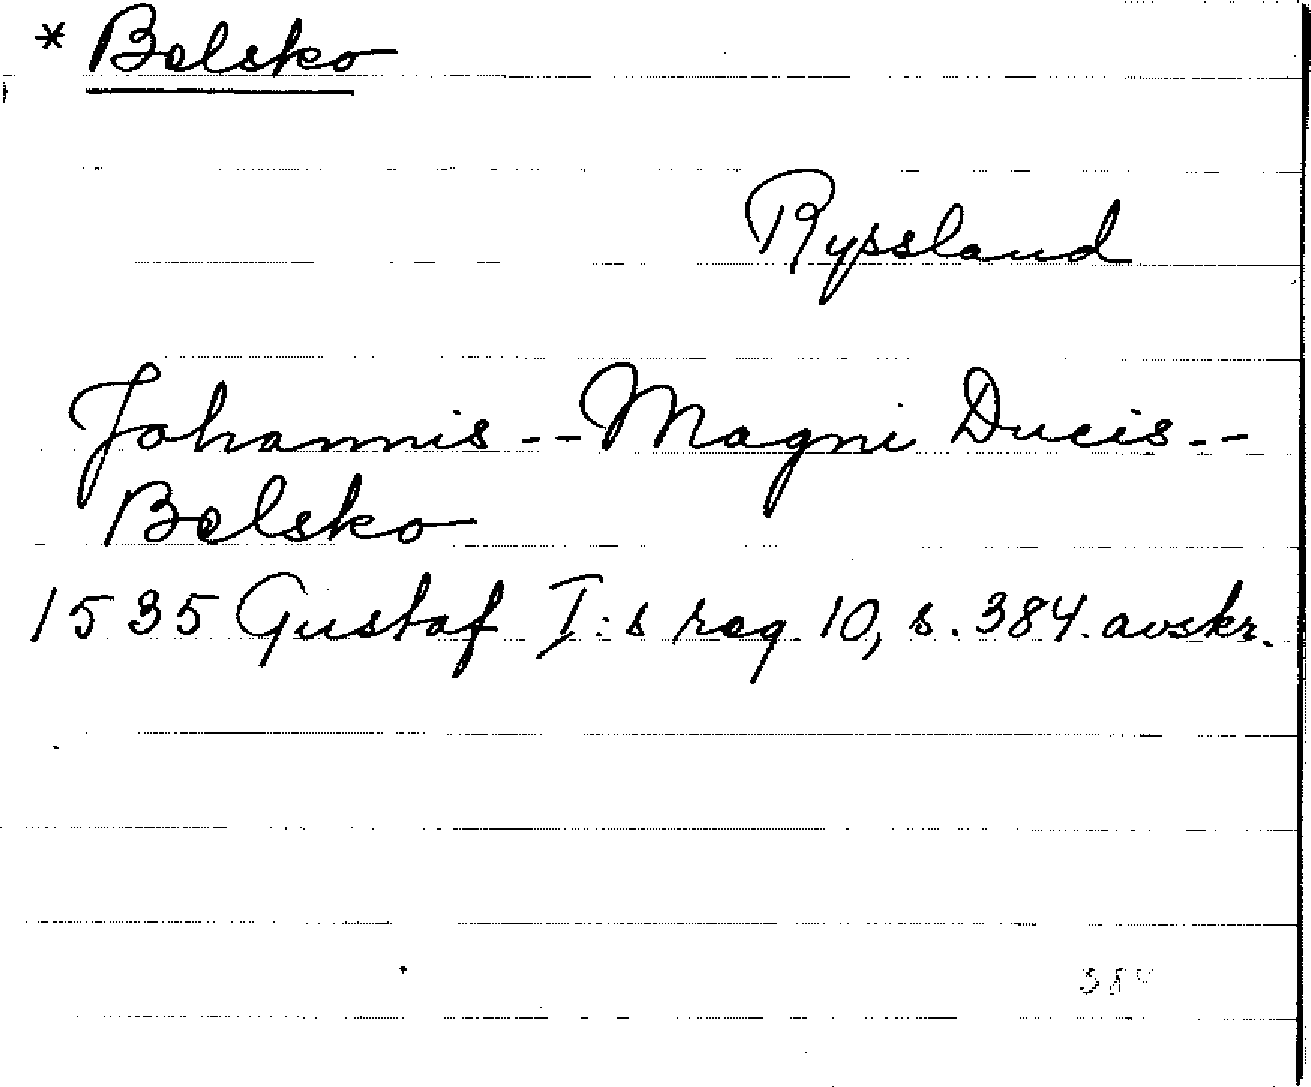 * Belsko
Ryssland
Johannis -- Magni Ducis --
Belsko
1535 Gustaf I:s reg 10, s. 384. avskr.
384